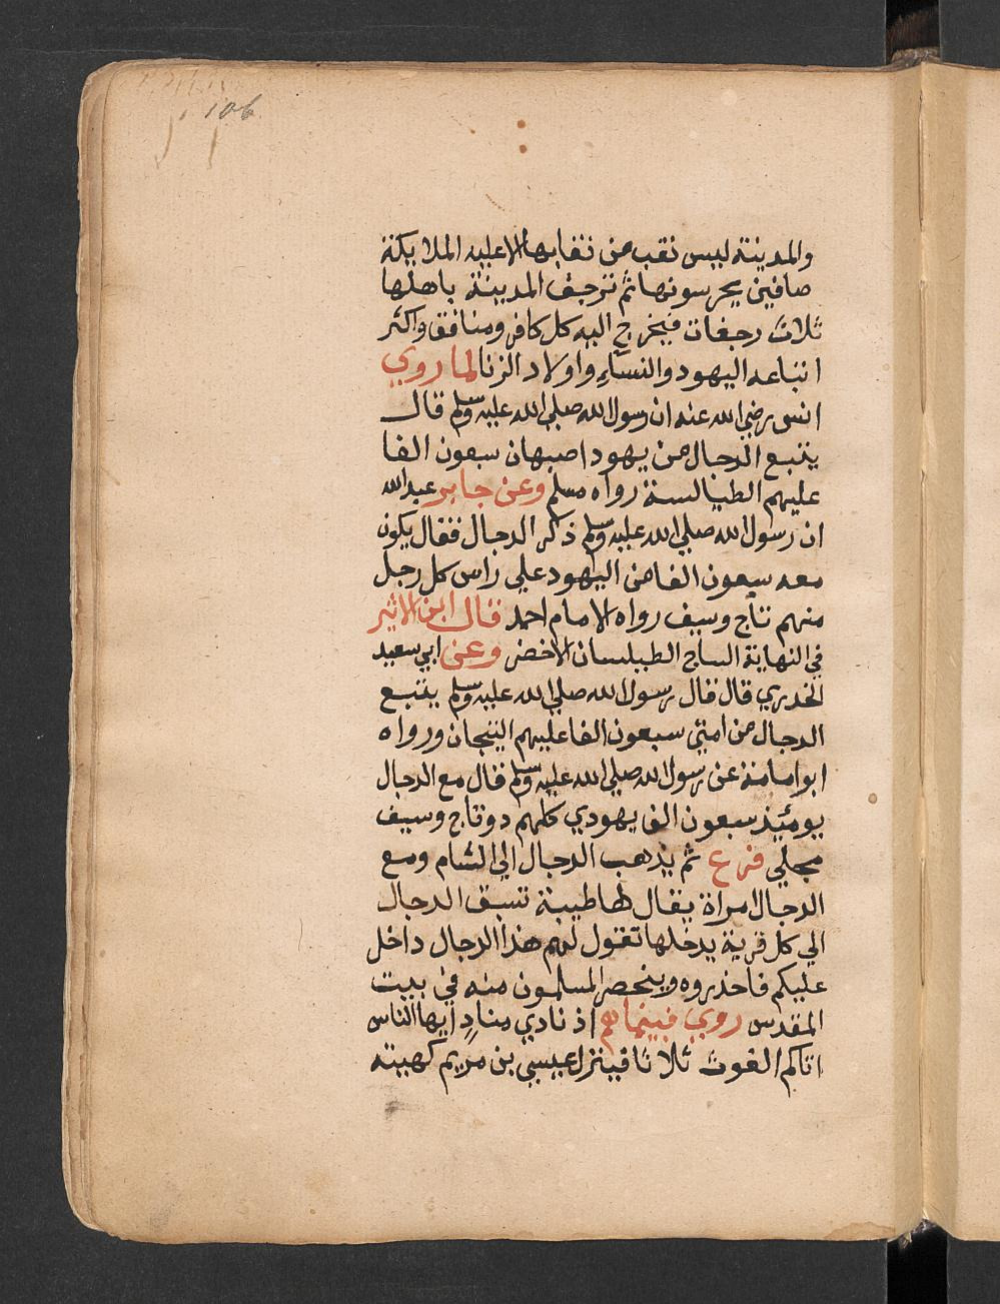 106
والمدينة ليس نقب من نقابها الا عليه الملايكة
صافين يحرسونها ثم ترجف المدينة باهلها
ثلاث رجفات فيخرج اليه كل كافر ومنافق واكثر
اتباعه اليهود والنساء واولاد الزنا لما روي
انس رضي الله عنه ان رسول الله صلي الله عليه وسلم قال
يتبع الدجال من يهود اصبهان سبعون الفا
عليهم الطيالسة رواه مسلم وعن جابر عبد الله
ان رسول الله صلي الله عليه وسلم ذكر الدجال فقال يكون
معه سبعون الفا من اليهود علي راس كل رجل
منهم تاج وسيف رواه الامام احمد قال ابن الاثير
في النهاية الساج الطيلسان الاخضر وعن ابي سعيد
الخدري قال قال رسول الله صلي الله عليه وسلم يتبع
الدجال من امتي سبعون الفا عليهم التيجان ورواه
ابو امامة عن رسول الله صلي الله عليه وسلم قال مع الدجال
يومئذ سبعون الف يهودي كلهم دو تاج وسيف
مجلي فرع ثم يذهب الدجال الي الشام ومع
الدجال امراة يقال لها طيبة تسبق الدجال
الي كل قرية يدخلها تقول لهم هذا الدجال داخل
عليكم فاحذروه وينحصر المسلمون منه في بيت
المقدس روي فبينما هم اذ نادي مناد ايها الناس
اتاكم الغوث ثلاثا فينزل عيسي بن مريم كهيته